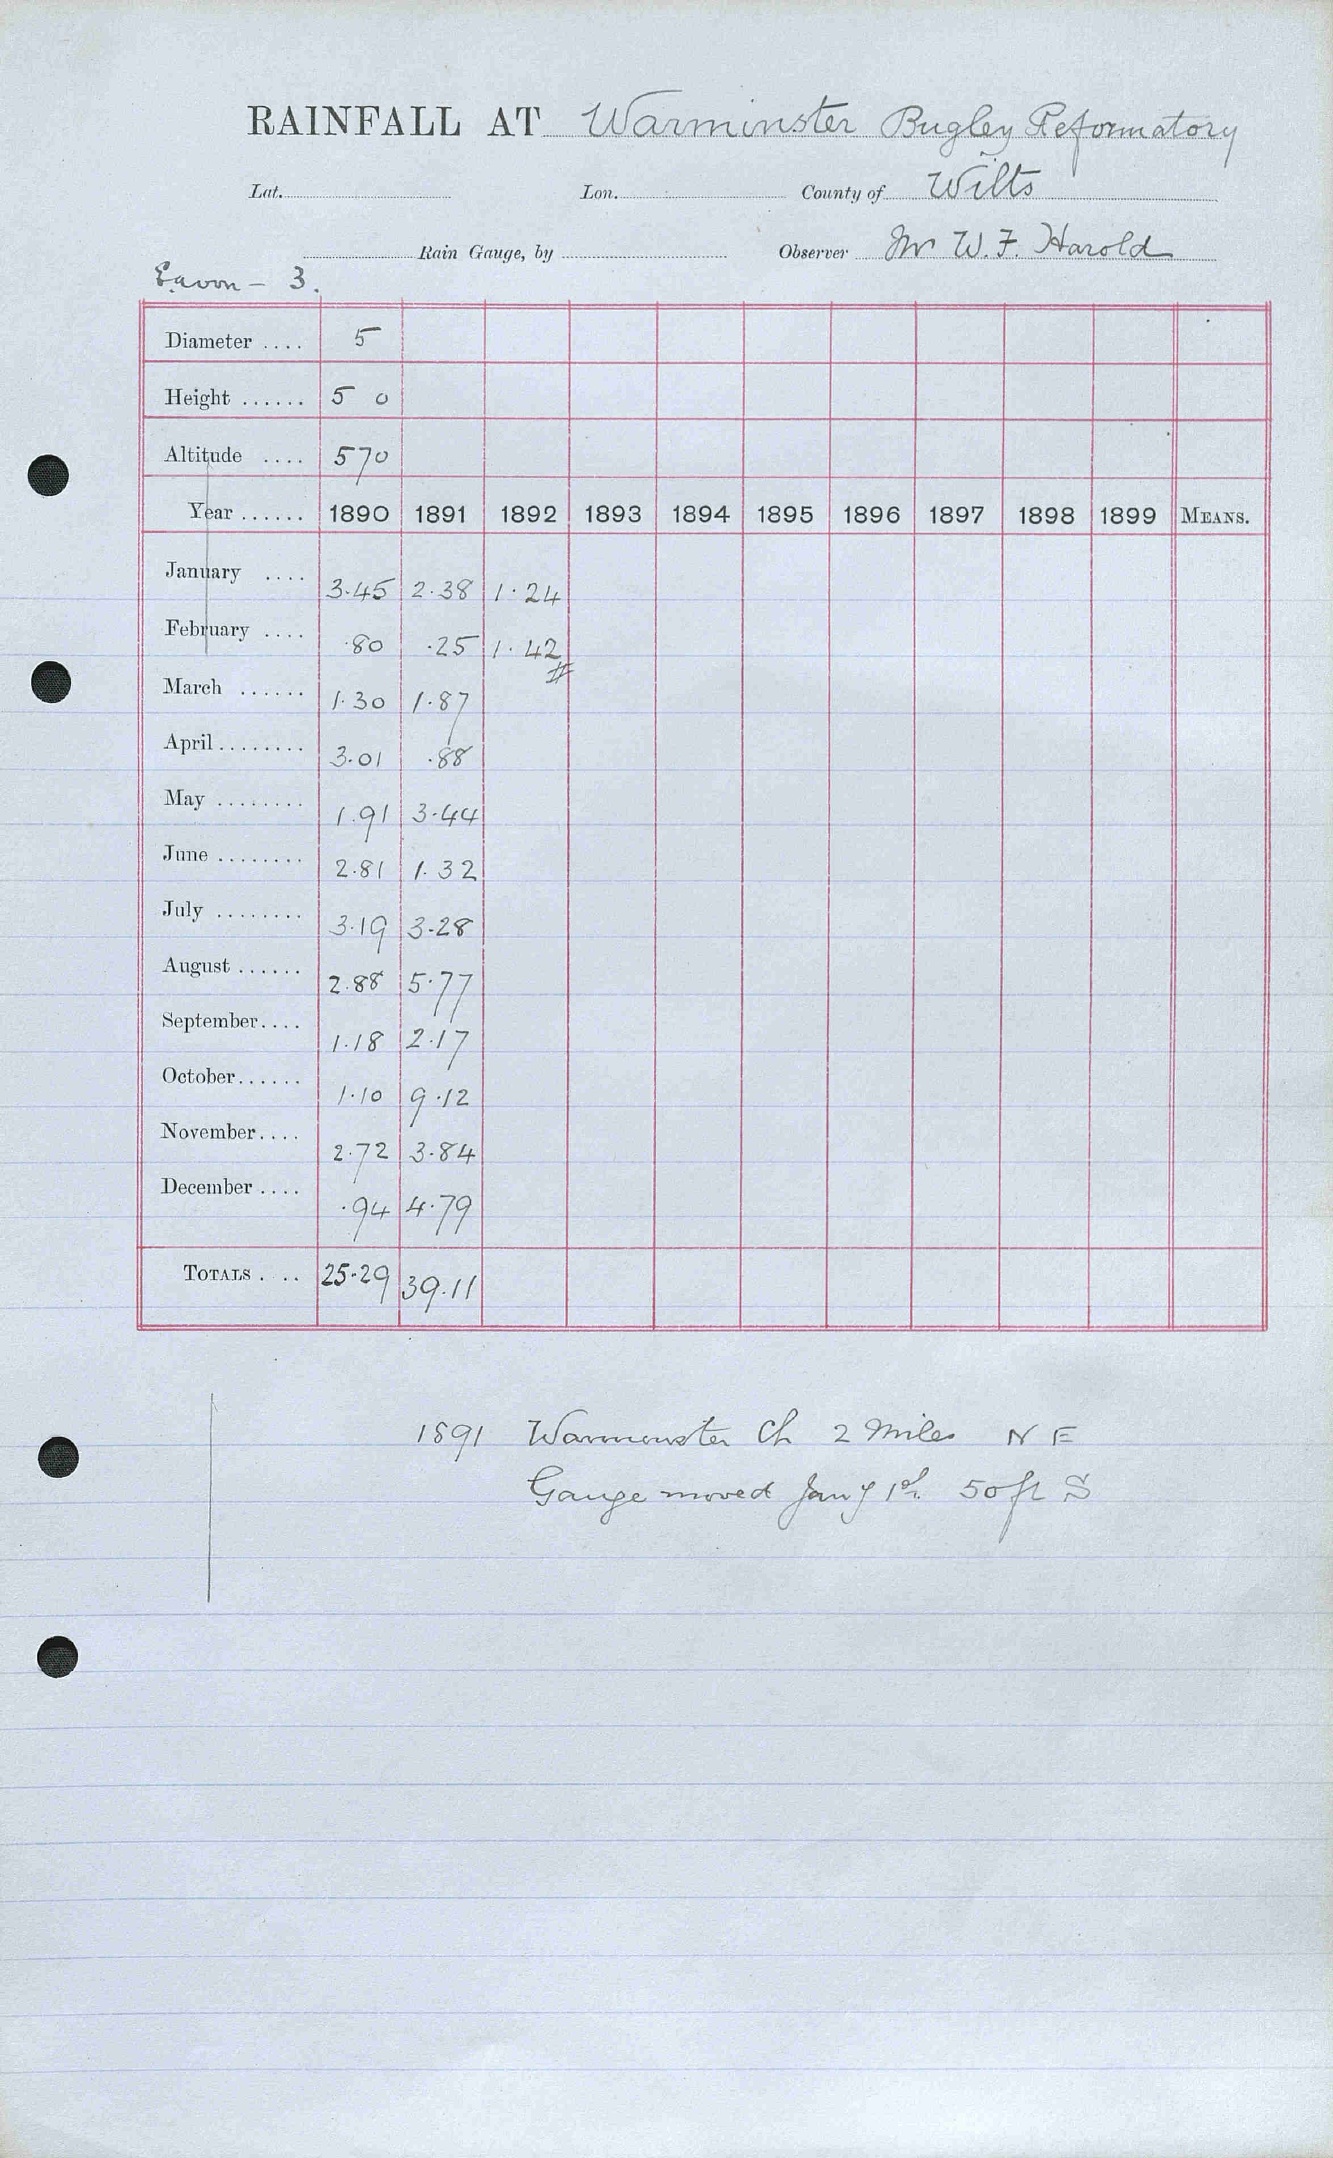 RAINFALL AT Warminster Bugley Reformatory
Lat. Lon. County of Wilts
Rain Gauge, by Observer Mr W. F. Harold
Eavon - 3.
Diameter .... 5
Height ...... 5 0
Altitude .... 570
Year ...... 1890 1891 1892 1893 1894 1895 1896 1897 1898 1899 MEANS.
January .... 3.45 2.38 1.24
February .... .80 .25 1.42 #
March ...... 1.30 1.87
April ........ 3.01 .88
May ........ 1.91 3.44
June ........ 2.81 1.32
July ........ 3.19 3.28
August ...... 2.88 5.77
September .... 1.18 2.17
October ...... 1.10 9.12
November .... 2.72 3.84
December .... .94 4.79
TOTALS . .. 25.29 39.11
1891 Warminster Ch 2 Miles N E
Gauge moved Jany 1st 50 ft S